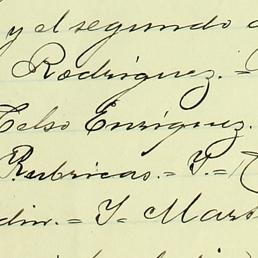 y el segundo
Rodríguez.=
Celso Enríguez.
Rubricas.=Y.=
din.=Y=Mart